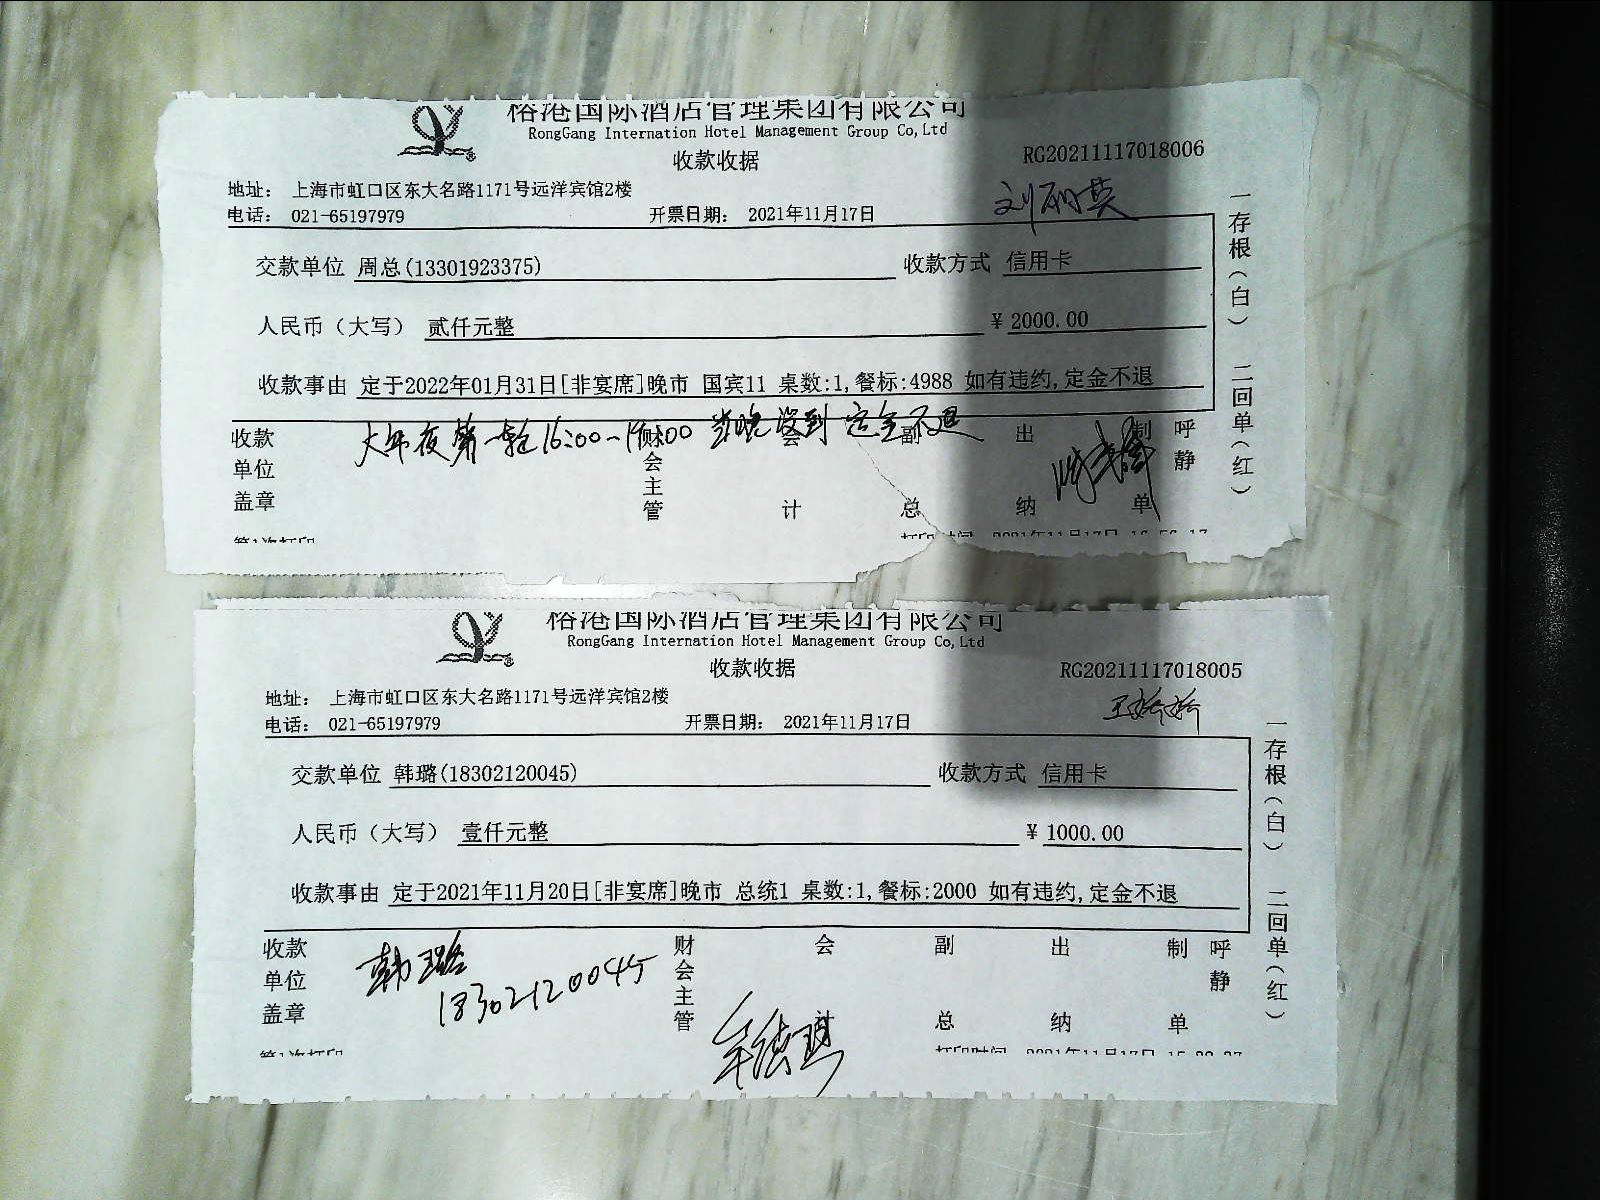 榕港国际酒店管理集团有限公司
RongGang Internation Hotel Management Group Co,Ltd
收款收据
RG20211117018006
地址： 上海市虹口区东大名路1171号远洋宾馆2楼
电话： 021-65197979 开票日期： 2021年11月17日
交款单位 周总(13301923375) 收款方式 信用卡
人民币（大写） 贰仟元整 ¥ 2000.00
收款事由 定于2022年01月31日[非宴席]晚市 国宾11 桌数:1,餐标:4988 如有违约,定金不退
大年夜第一轮16:00-19:00 当晚没到 定金不退
收款单位盖章 财会主管 会计 副总 出纳 制单 呼静
一存根（白） 二回单（红）
第1次打印 打印时间 2021年11月17日
榕港国际酒店管理集团有限公司
RongGang Internation Hotel Management Group Co,Ltd
收款收据
RG20211117018005
地址： 上海市虹口区东大名路1171号远洋宾馆2楼
电话： 021-65197979 开票日期： 2021年11月17日
交款单位 韩璐(18302120045) 收款方式 信用卡
人民币（大写） 壹仟元整 ¥ 1000.00
收款事由 定于2021年11月20日[非宴席]晚市 总统1 桌数:1,餐标:2000 如有违约,定金不退
收款单位盖章 财会主管 会计 副总 出纳 制单 呼静
韩璐
18302120045
一存根（白） 二回单（红）
第1次打印 打印时间 2021年11月17日